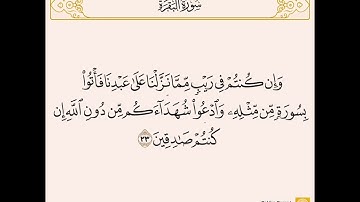 سُورَةُ البَقَرَةِ
وَإِن كُنتُمْ فِي رَيْبٍ مِّمَّا نَزَّلْنَا عَلَىٰ عَبْدِنَا فَأْتُوا۟
بِسُورَةٍ مِّن مِّثْلِهِۦ وَٱدْعُوا۟ شُهَدَآءَكُم مِّن دُونِ ٱللَّهِ إِن
كُنتُمْ صَـٰدِقِينَ ٢٣